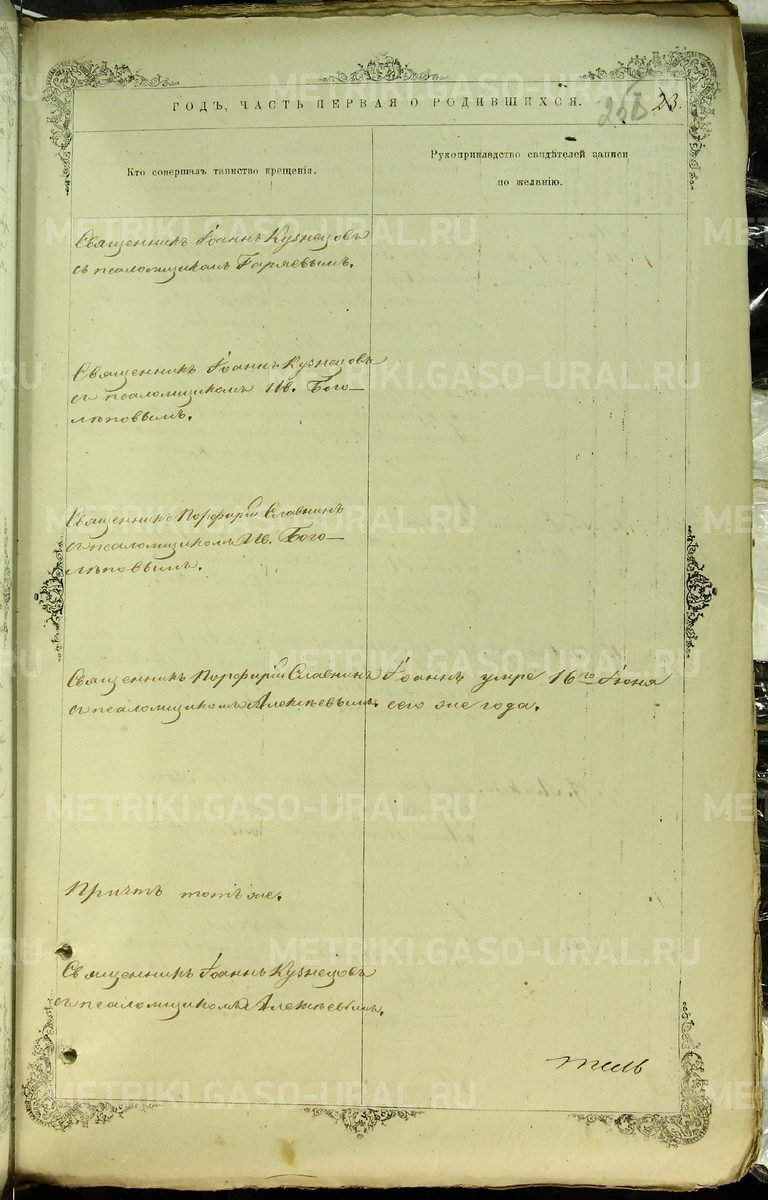 ГОДЪ, ЧАСТЬ ПЕРВАЯ О РОДИВШИХСЯ.
23.
Кто совершалъ таинство крещенія.
Рукоприкладство свидѣтелей записи
по желанію.
Священникъ Іоаннъ Кузнецовъ
съ псаломщикомъ Гаряевымъ.
Священникъ Іоаннъ Кузнецовъ
съ псаломщикомъ Ив. Бого-
лѣповымъ.
Священникъ Порфирій Славнинъ
съ псаломщикомъ Ив. Бого-
лѣповымъ.
Священникъ Порфирій Славнинъ
съ псаломщикомъ Алексѣевымъ.
Іоаннъ умре 16го Іюня
сего же года.
Причтъ тотъ же.
Священникъ Іоаннъ Кузнецовъ
съ псаломщикомъ Алексѣевымъ.
тель
METRIKI.GASO-URAL.RU